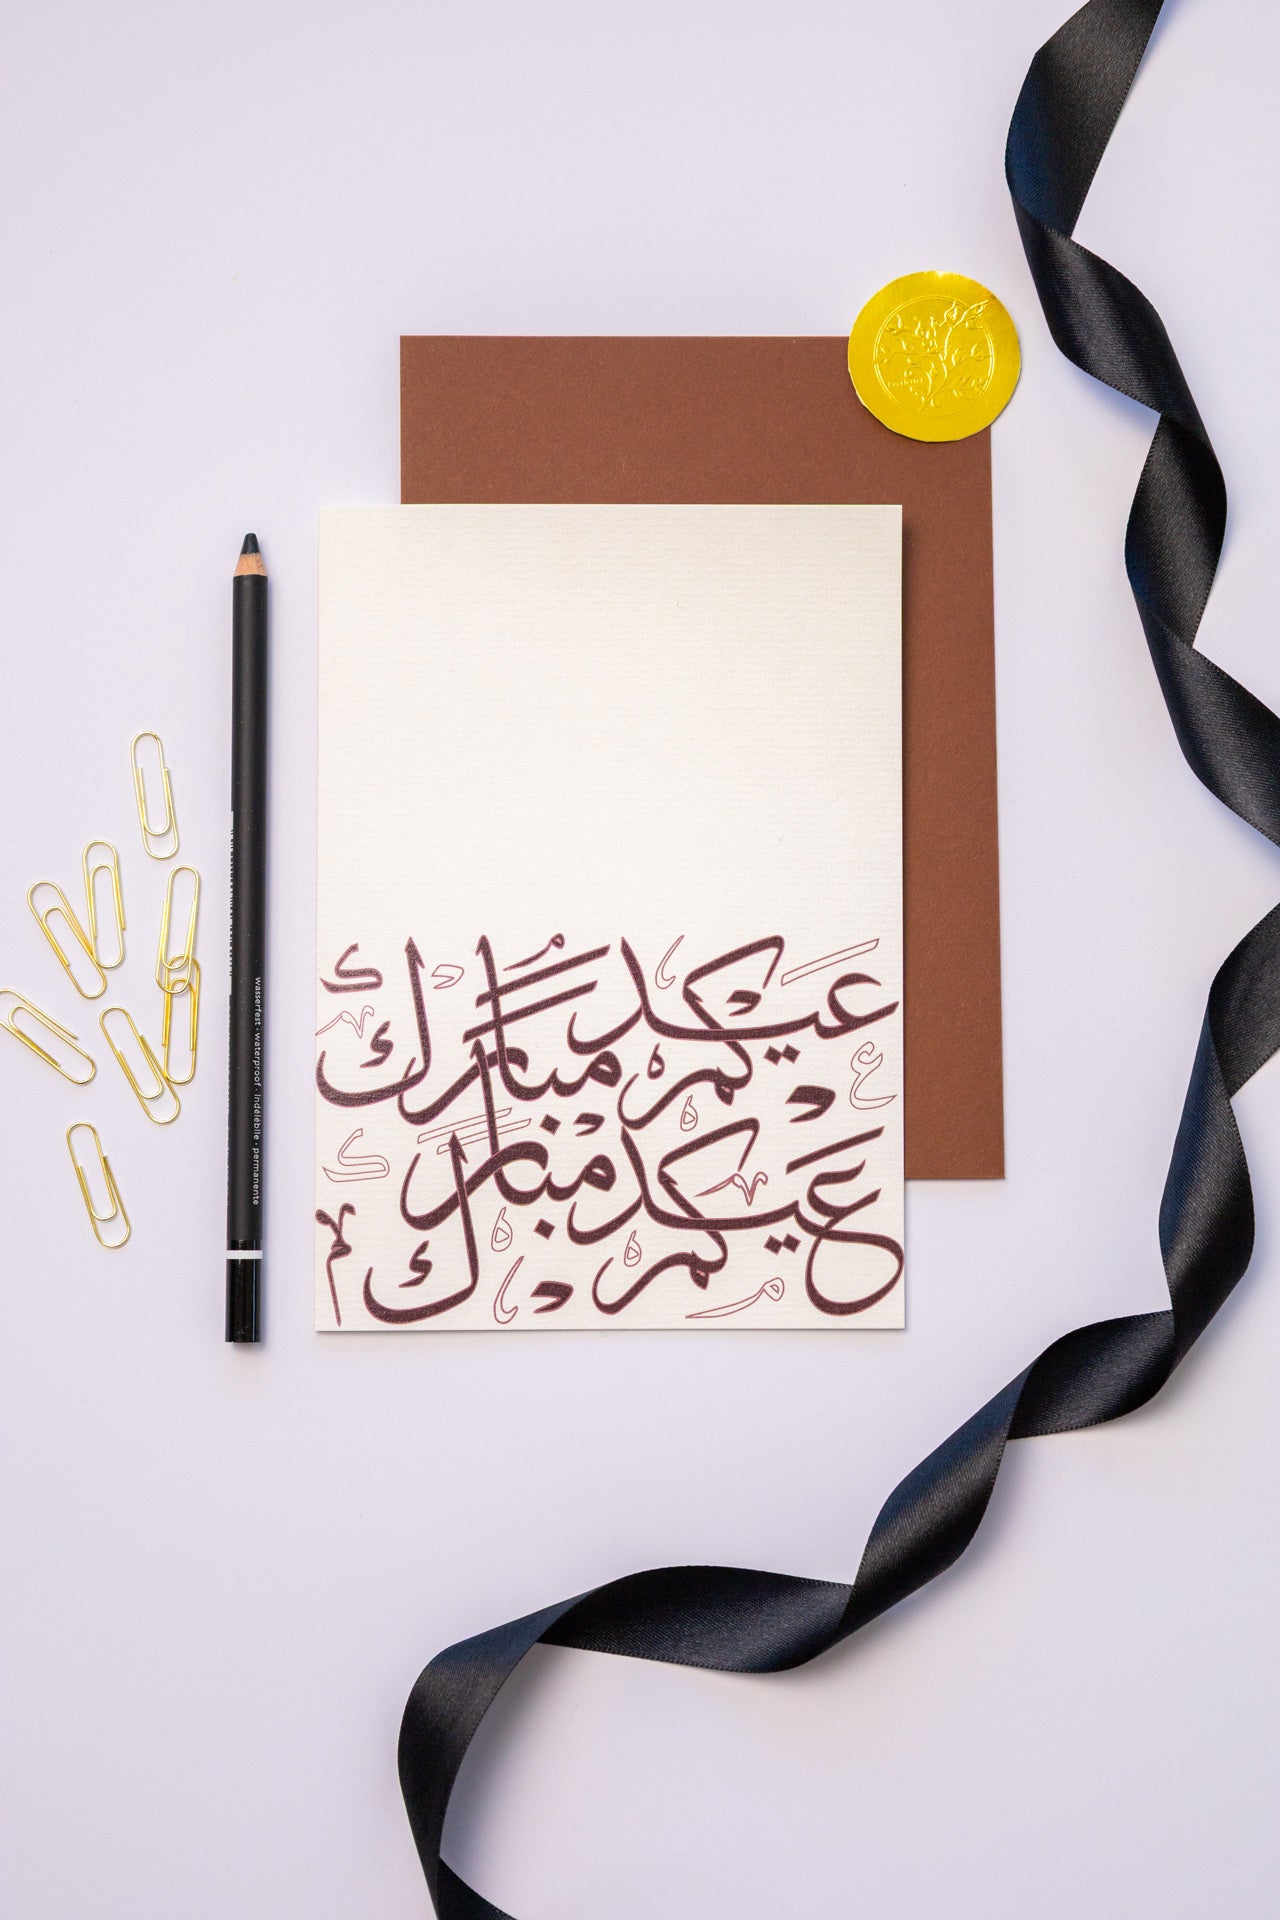 عيدكم مبارك
عيدكم مبارك
wasserfest · waterproof · indélébile · permanente